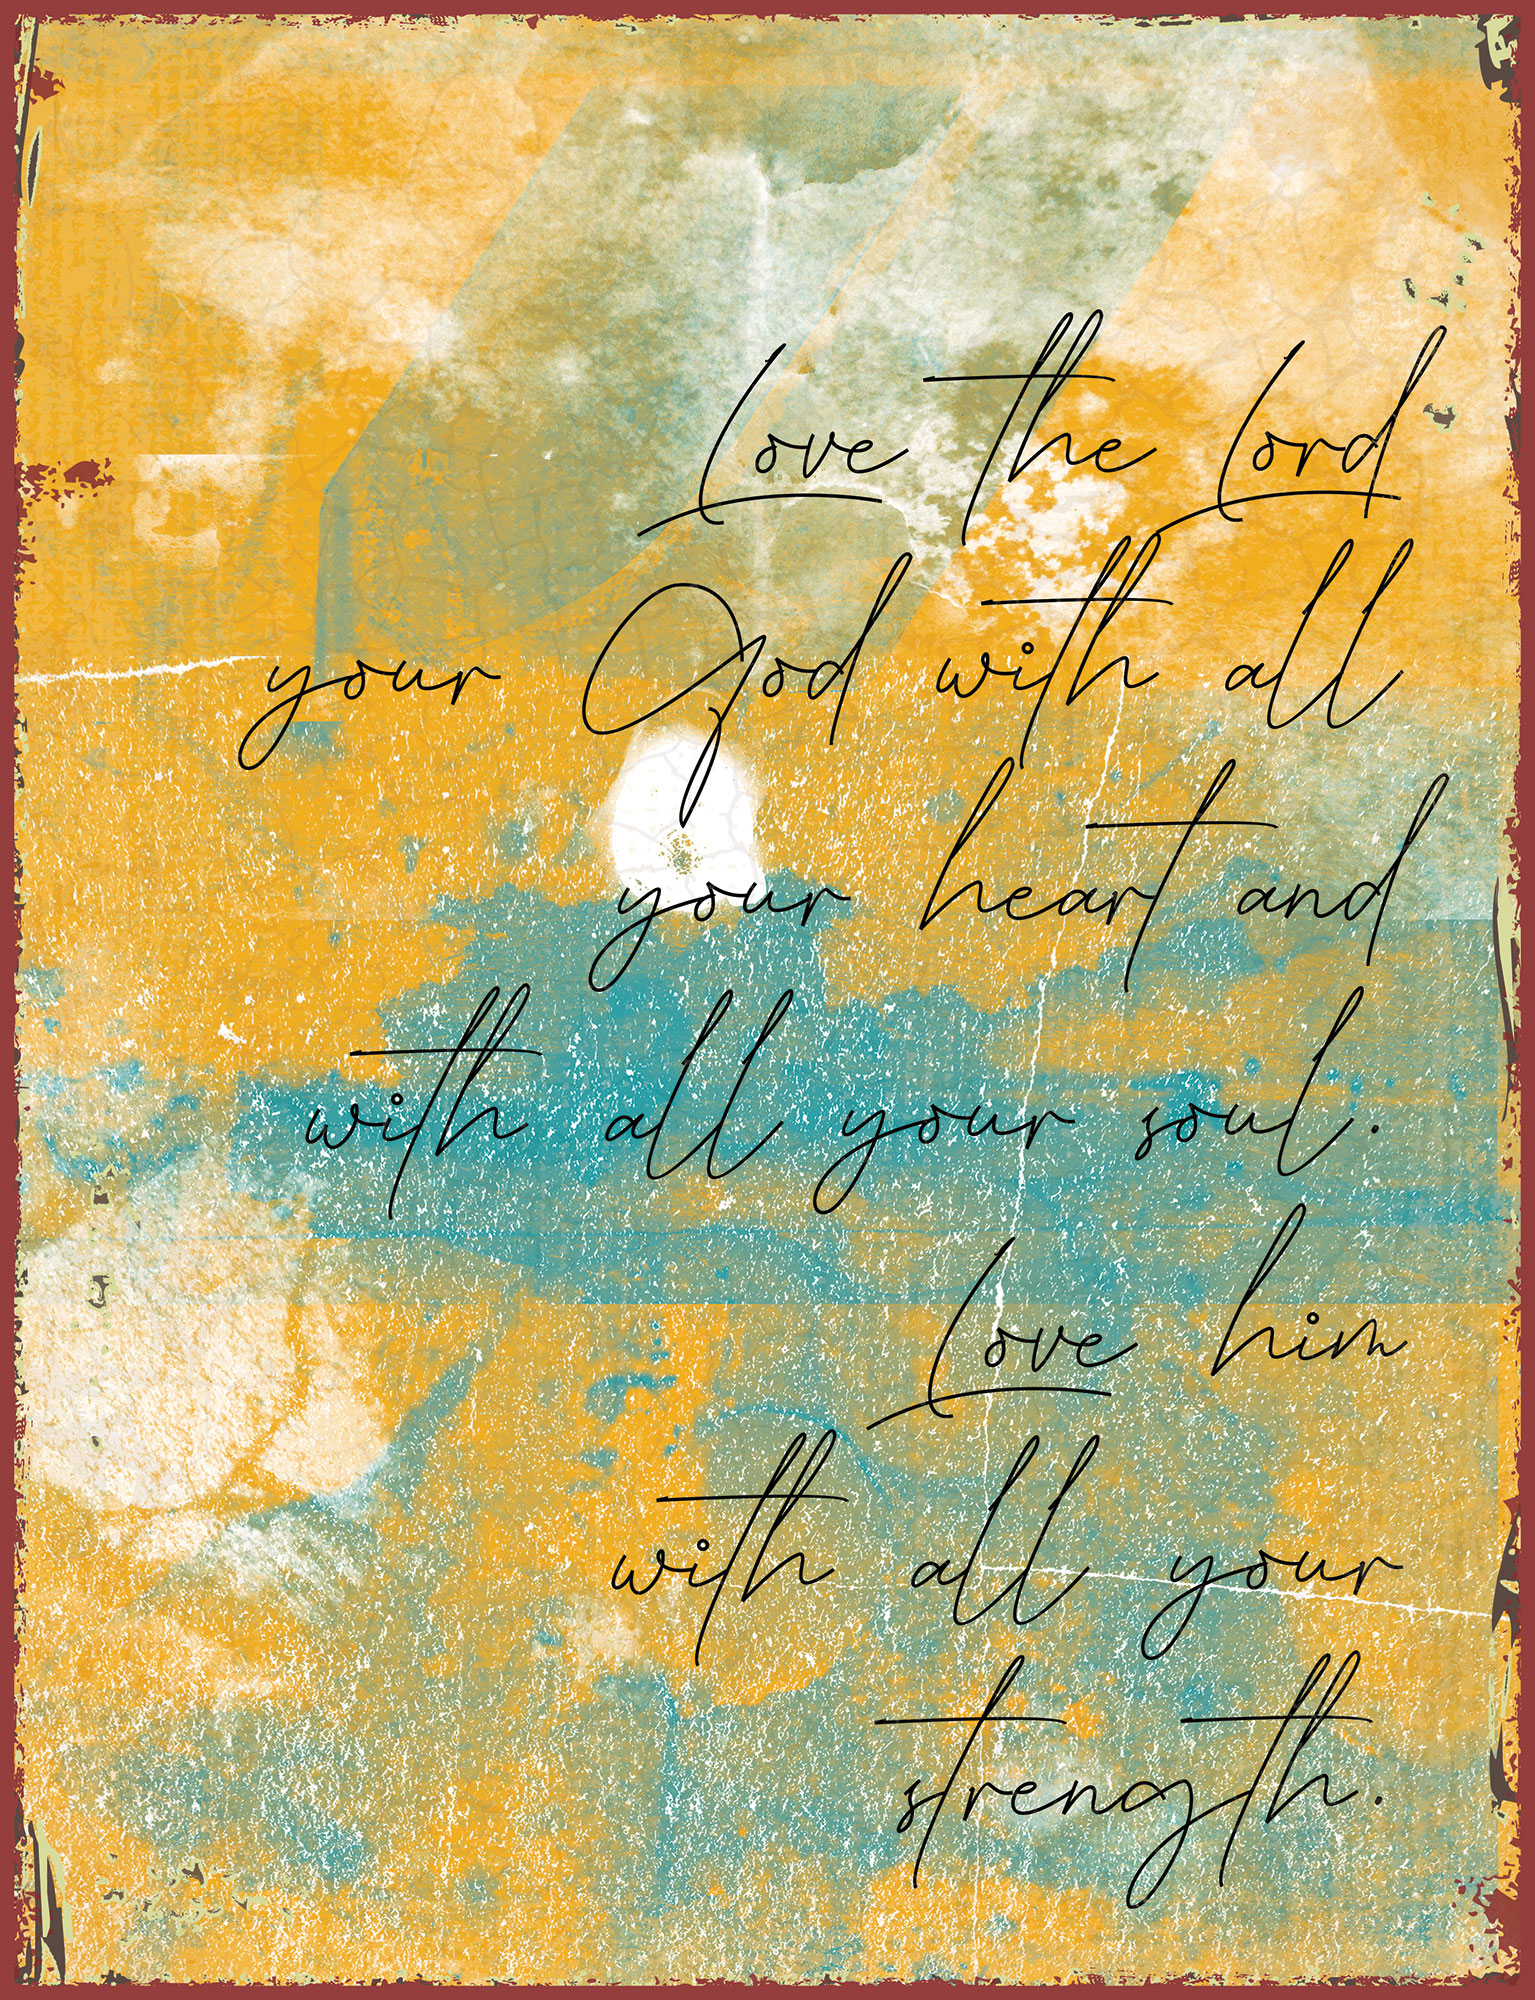 Love the Lord
your God with all
your heart and
with all your soul.
Love him
with all your
strength.